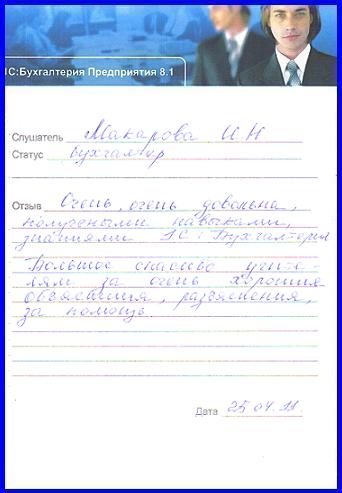 1С:Бухгалтерия Предприятия 8.1
Слушатель Макарова И Н
Статус бухгалтер
Отзыв Очень, очень довольна,
полученными навыками,
знаниями 1С: Бухгалтерия
Большое спасибо учите-
лям за очень хорошие
объяснения, разъяснения,
за помощь
Дата 25 04. 11.